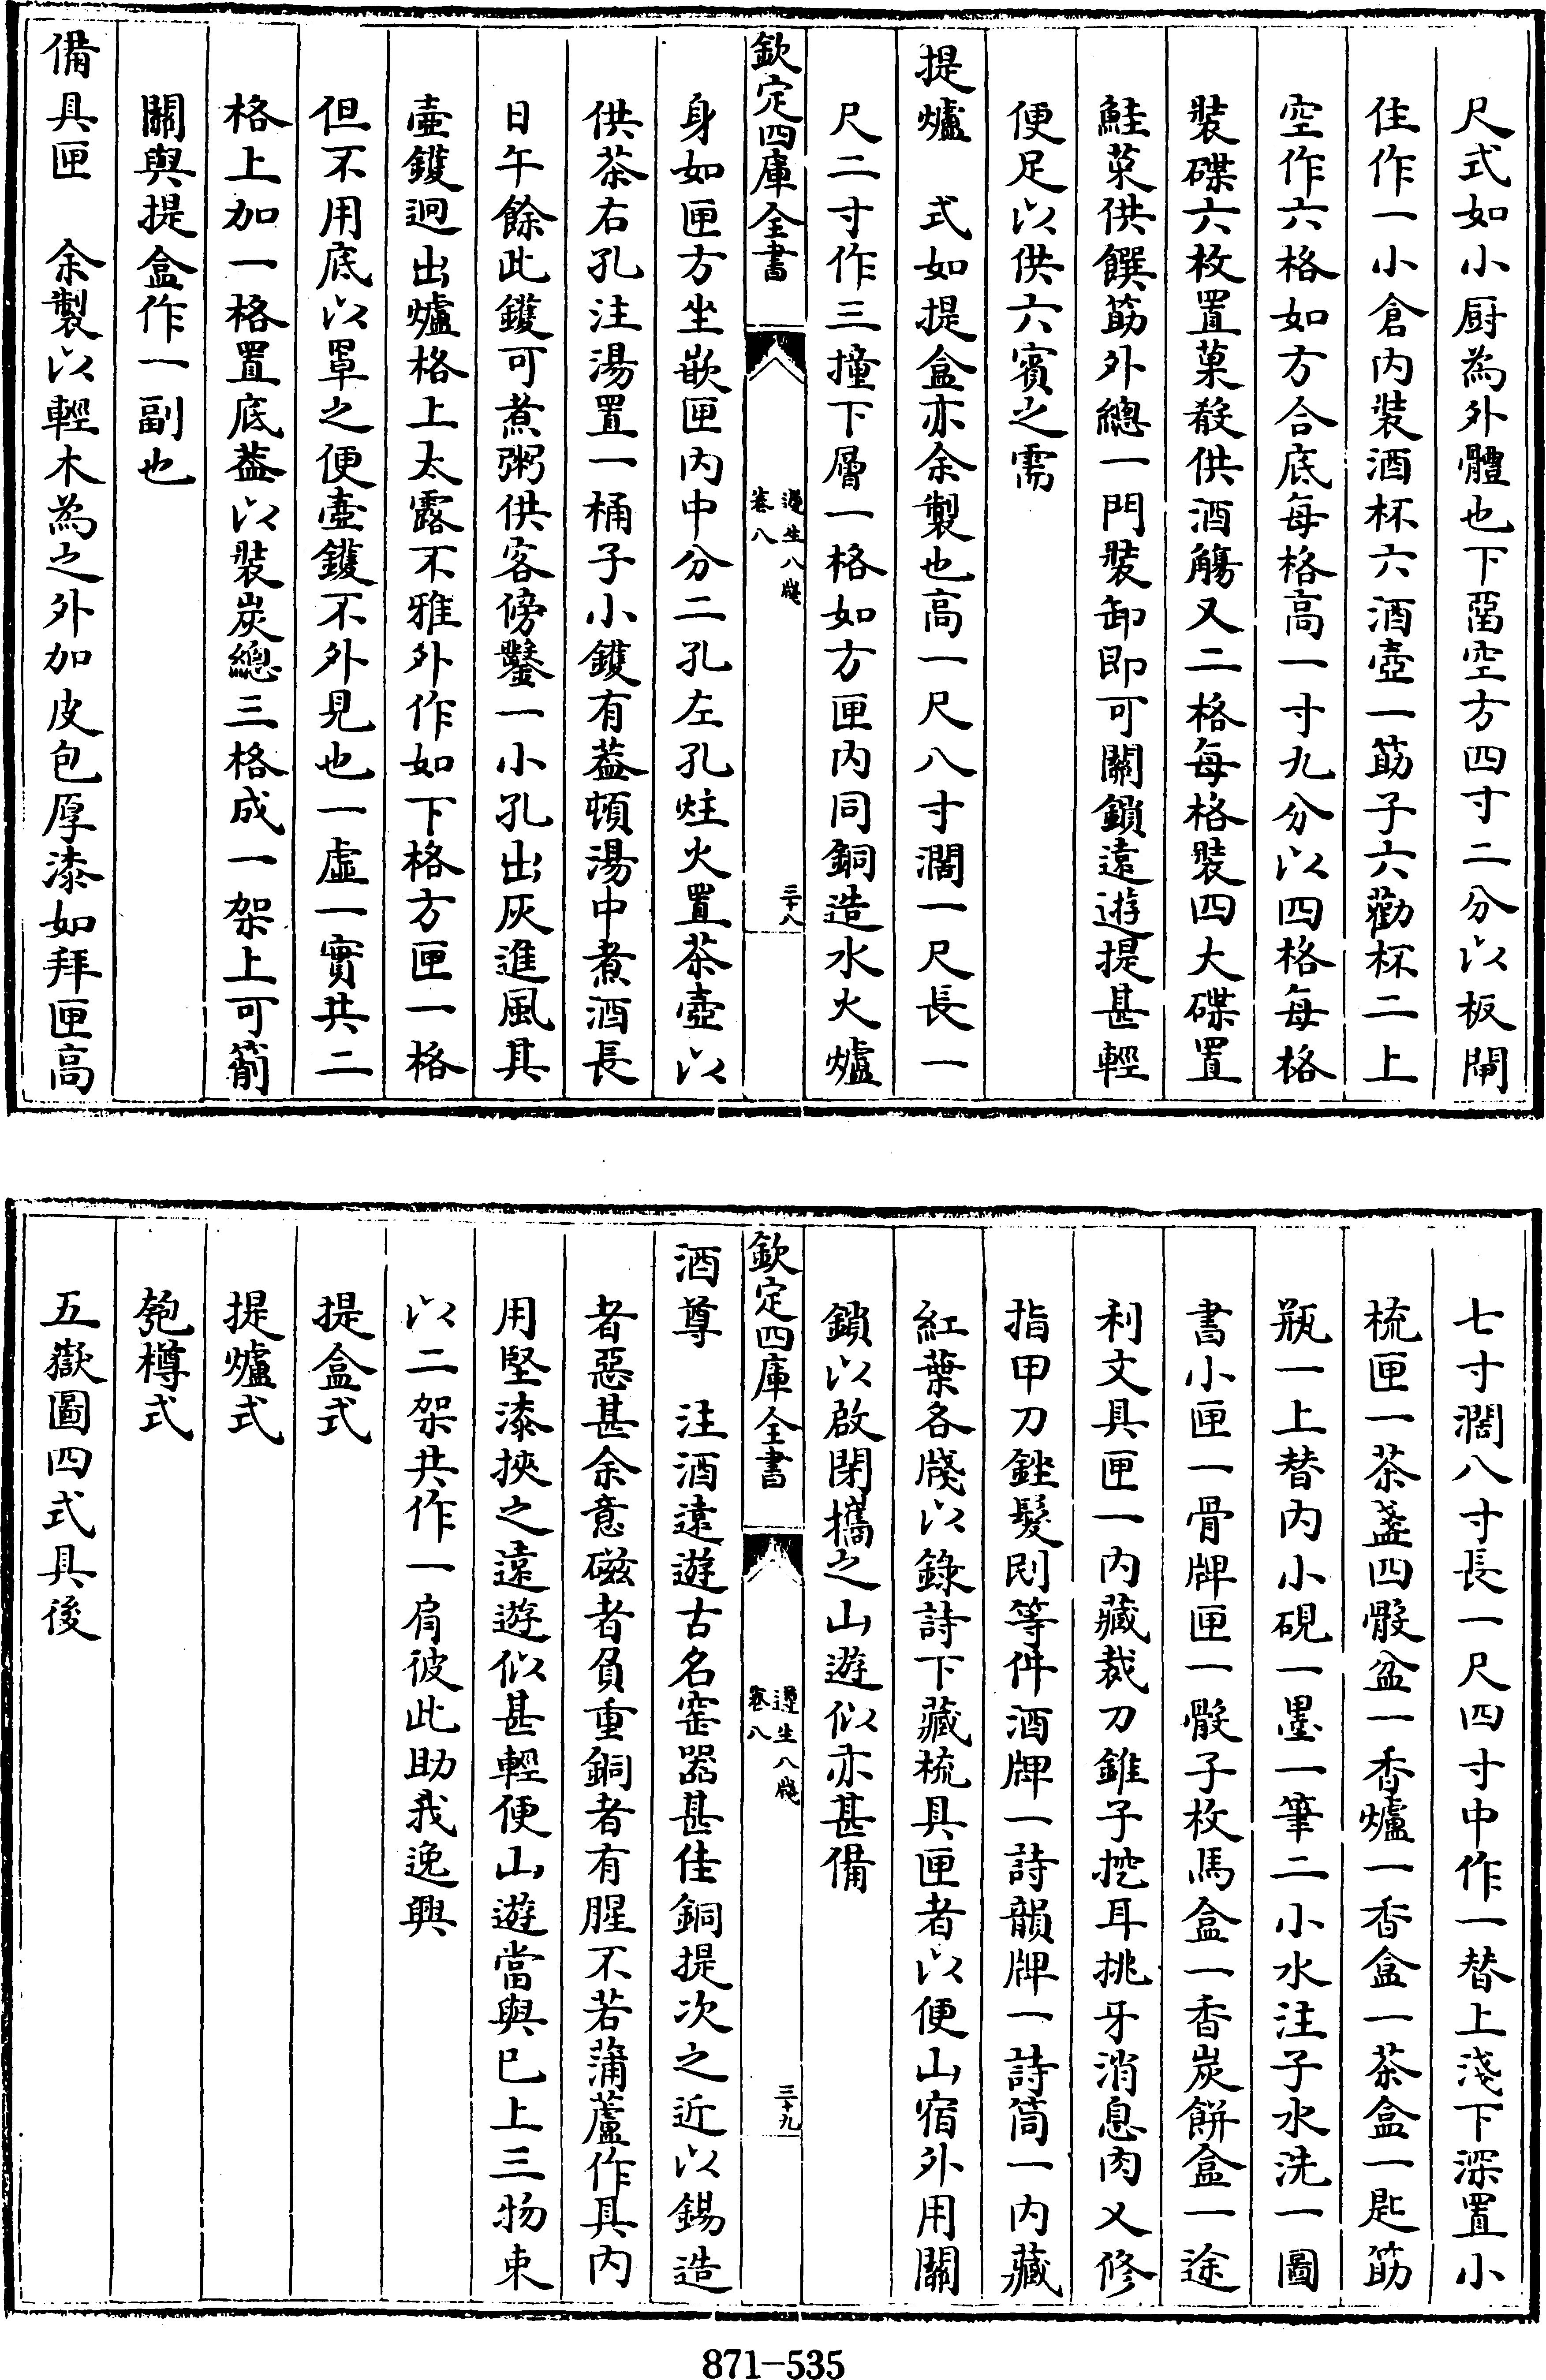 尺式如小厨為外體也下畱空方四寸二分以板閘
住作一小倉內裝酒杯六酒壺一筯子六勸杯二上
空作六格如方合底每格高一寸九分以四格每格
裝碟六枚置菓殽供酒觴又二格每格裝四大碟置
鮭菜供饌筯外總一門裝卸即可關鎖遠遊提甚輕
便足以供六賓之需
提爐　式如提盒亦余製也高一尺八寸濶一尺長一
尺二寸作三撞下層一格如方匣內同銅造水火爐
欽定四庫全書
遵生八牋
卷八
三十八
身如匣方坐嵌匣內中分二孔左孔炷火置茶壺以
供茶右孔注湯置一桶子小鑊有葢頓湯中煮酒長
日午餘此鑊可煮粥供客傍鑿一小孔出灰進風其
壺鑊迥出爐格上太露不雅外作如下格方匣一格
但不用底以罩之便壺鑊不外見也一虛一實共二
格上加一格置底葢以裝炭總三格成一架上可箾
關與提盒作一副也
備具匣　余製以輕木為之外加皮包厚漆如拜匣高
七寸濶八寸長一尺四寸中作一替上淺下深置小
梳匣一茶盞四骰盆一香爐一香盒一茶盒一匙筯
瓶一上替內小硯一墨一筆二小水注子水洗一圖
書小匣一骨牌匣一骰子枚馬盒一香炭餅盒一途
利文具匣一內藏裁刀錐子挖耳挑牙消息肉叉修
指甲刀銼髮刡等件酒牌一詩韻牌一詩筒一內藏
紅葉各牋以錄詩下藏梳具匣者以便山宿外用關
鎖以啟閉攜之山遊似亦甚備
欽定四庫全書
遵生八牋
卷八
三十九
酒尊　注酒遠遊古名窑器甚佳銅提次之近以錫造
者惡甚余意磁者負重銅者有腥不若蒲蘆作具內
用堅漆挾之遠遊似甚輕便山遊當與已上三物束
以二架共作一肩彼此助我逸興
提盒式
提爐式
匏樽式
五嶽圖四式具後
871-535